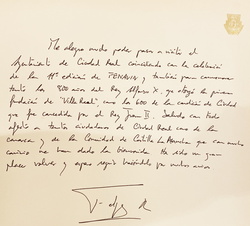 Me alegra mucho poder pasar a visitar el
Ayuntamiento de Ciudad Real coincidiendo con la celebración
de la 11ª edición de FENAVIN y también para conmemorar
tanto los 800 años del Rey Alfonso X, que otorgó la primera
fundación de "Villa Real", como los 600 de la condición de Ciudad
que fue concedida por el Rey Juan II. Saludo con todo
afecto a tantos ciudadanos de Ciudad Real como de la
comarca y de la Comunidad de Castilla-La Mancha que con mucho
cariño me han dado la bienvenida. Ha sido un gran
placer volver y espero seguir haciéndolo por muchos años